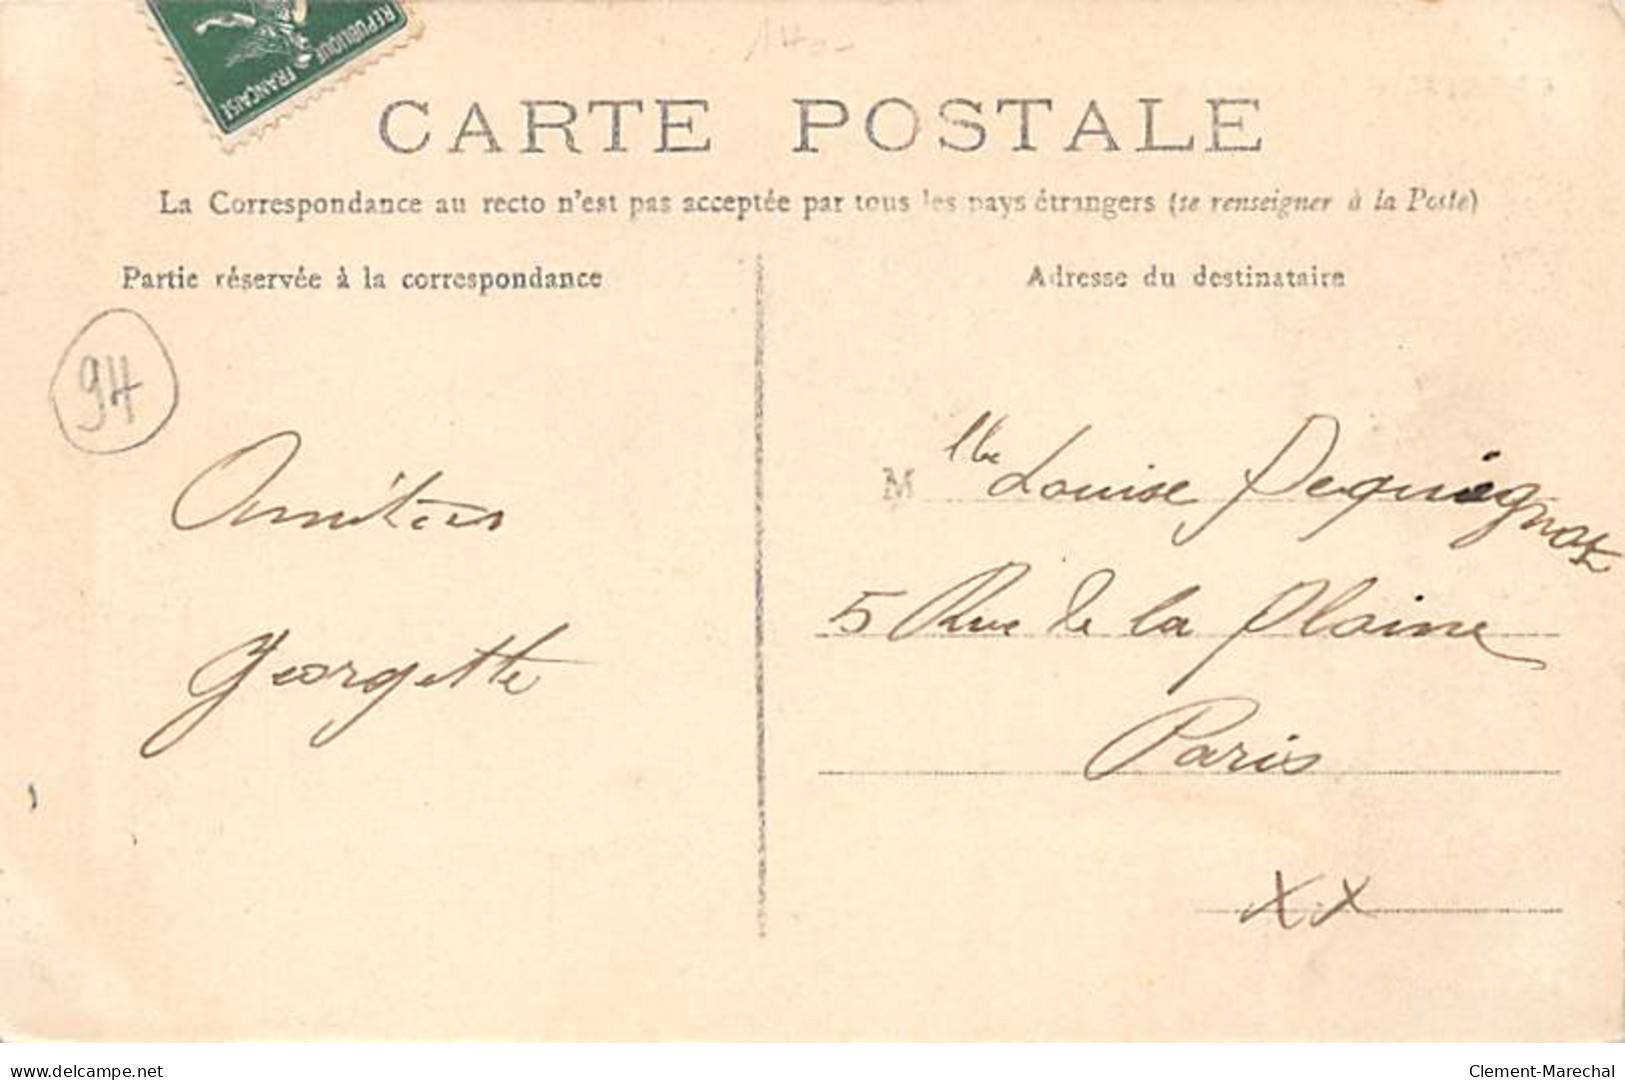 RÉPUBLIQUE FRANÇAISE
CARTE POSTALE
La Correspondance au recto n'est pas acceptée par tous les pays étrangers (se renseigner à la Poste)
Partie réservée à la correspondance
Adresse du destinataire
94
Amitiés
Georgette
Mlle Louise Pequignot
5 Rue de la Plaine
Paris
XX
delcampe.net
Clement-Marechal